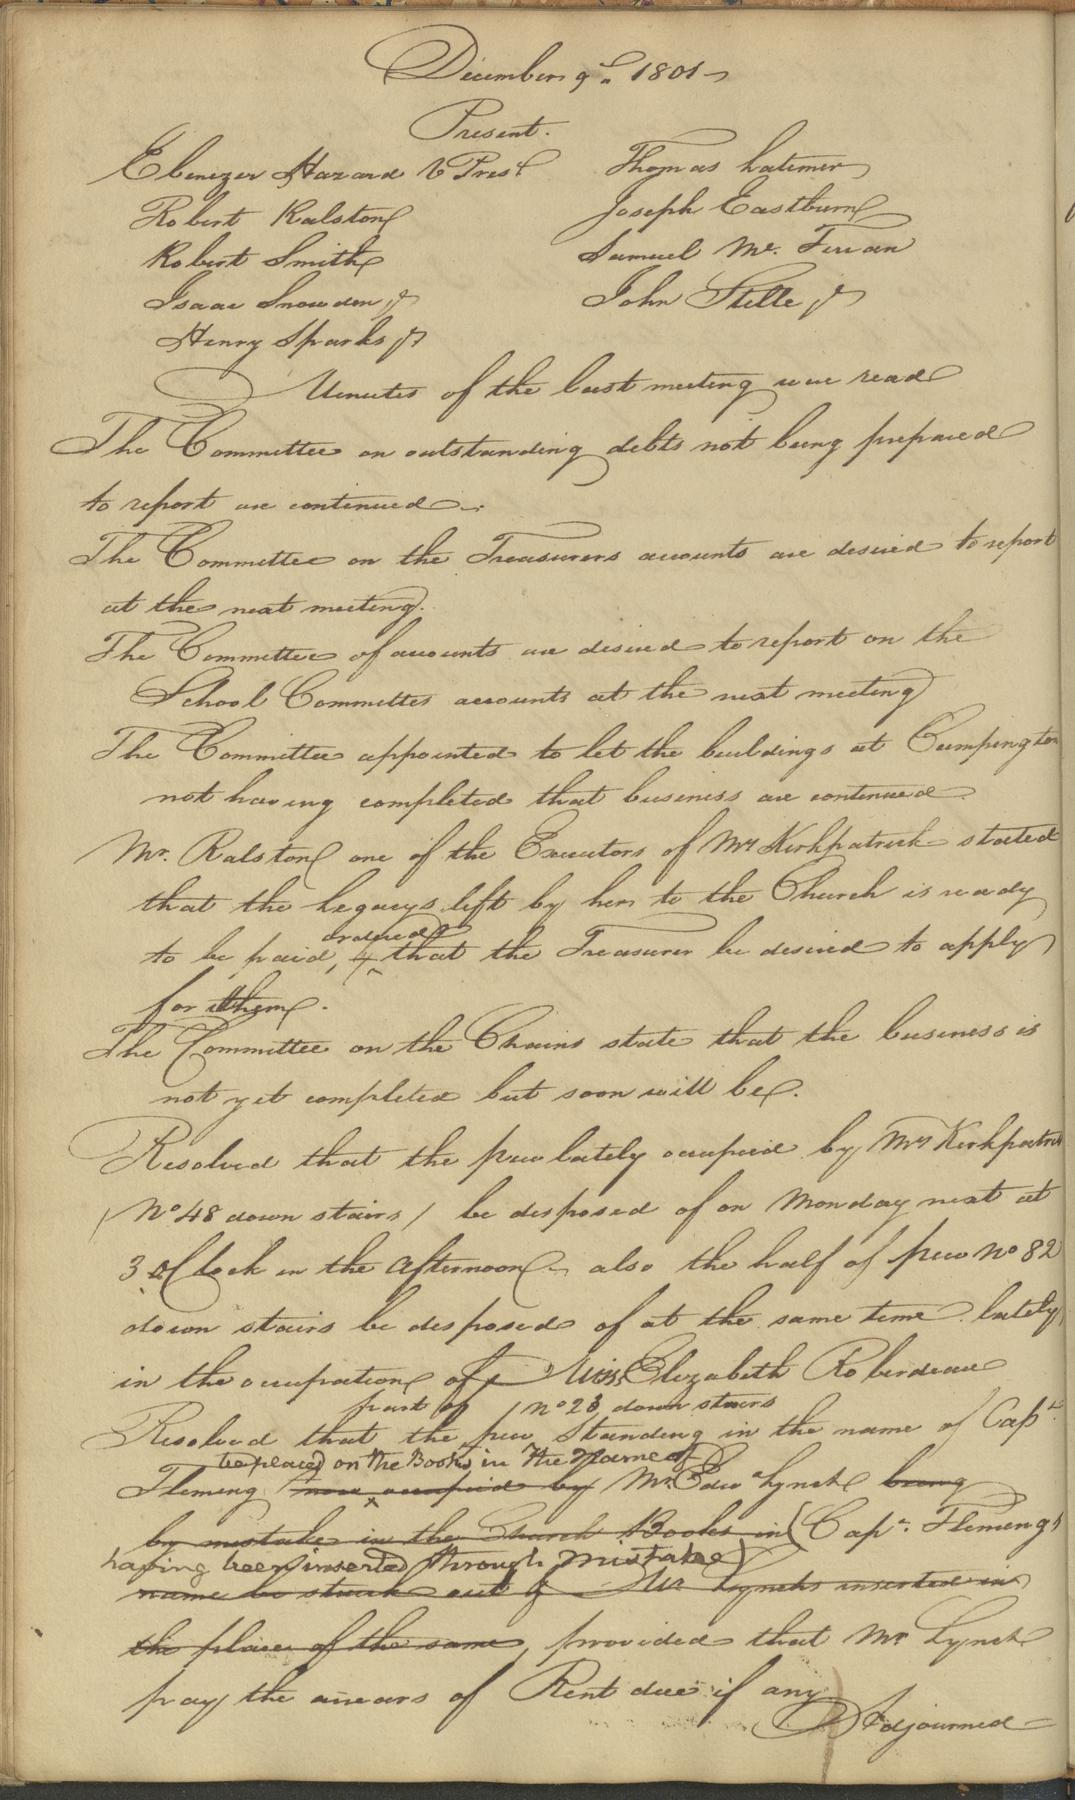 December 9th 1801
Present.
Ebenezer Hazard V Prest Thomas Latimer
Robert Ralston Joseph Eastburn
Robert Smith Samuel Mc. Ferran
Isaac Snowden Jr John Stille Jr
Henry Sparks Jr
Minutes of the last meeting were read
The Committee on outstanding debts not being prepared
to report are continued.
The Committee on the Treasurers accounts are desired to report
at the next meeting.
The Committee of accounts are desired to report on the
School Committes accounts at the next meeting
The Committee appointed to let the buildings at Campington
not having completed that business are continued
Mr. Ralston one of the Executors of Mrs Kirkpatrick stated
that the Legacys left by her to the Church is ready
ordered
to be paid, & that the Treasurer be desired to apply
for them.
The Committee on the Chains state that the business is
not yet completed but soon will be.
Resolved that the pew lately occupied by Mrs Kirkpatrick
/ No 48 down stairs / be disposed of on Monday next at
3 OClock in the afternoon also the half of pew No 82
down stairs be disposed of at the same time lately
in the occupation of Miss Elizabeth Roberdeau
part of / No 23 down stairs
Resolved that the pew Standing in the name of Capt
be placed on the Books in the Name of
Fleming now occupied by Mr. Edwd Lynch being
by mistake in the Church Books in (Capt. Flemings
having been inserted through mistake)
name be struck out & Mr Lynchs inserted in
the place of the same, provided that Mr Lynch
pay the arrears of Rent due if any
Adjourned